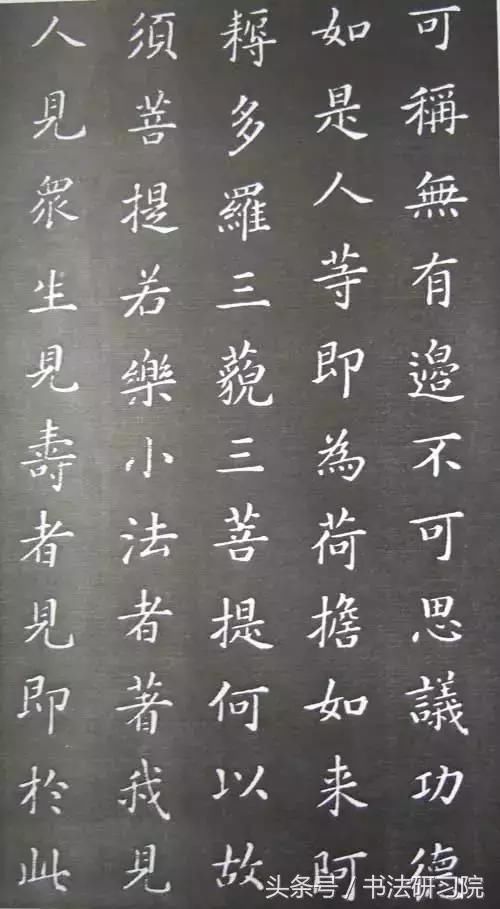 可稱無有邉不可思議功德
如是人等即為荷擔如来阿
耨多羅三藐三菩提何以故
須菩提若樂小法者著我見
人見衆生見壽者見即於此
头条号／书法研习院